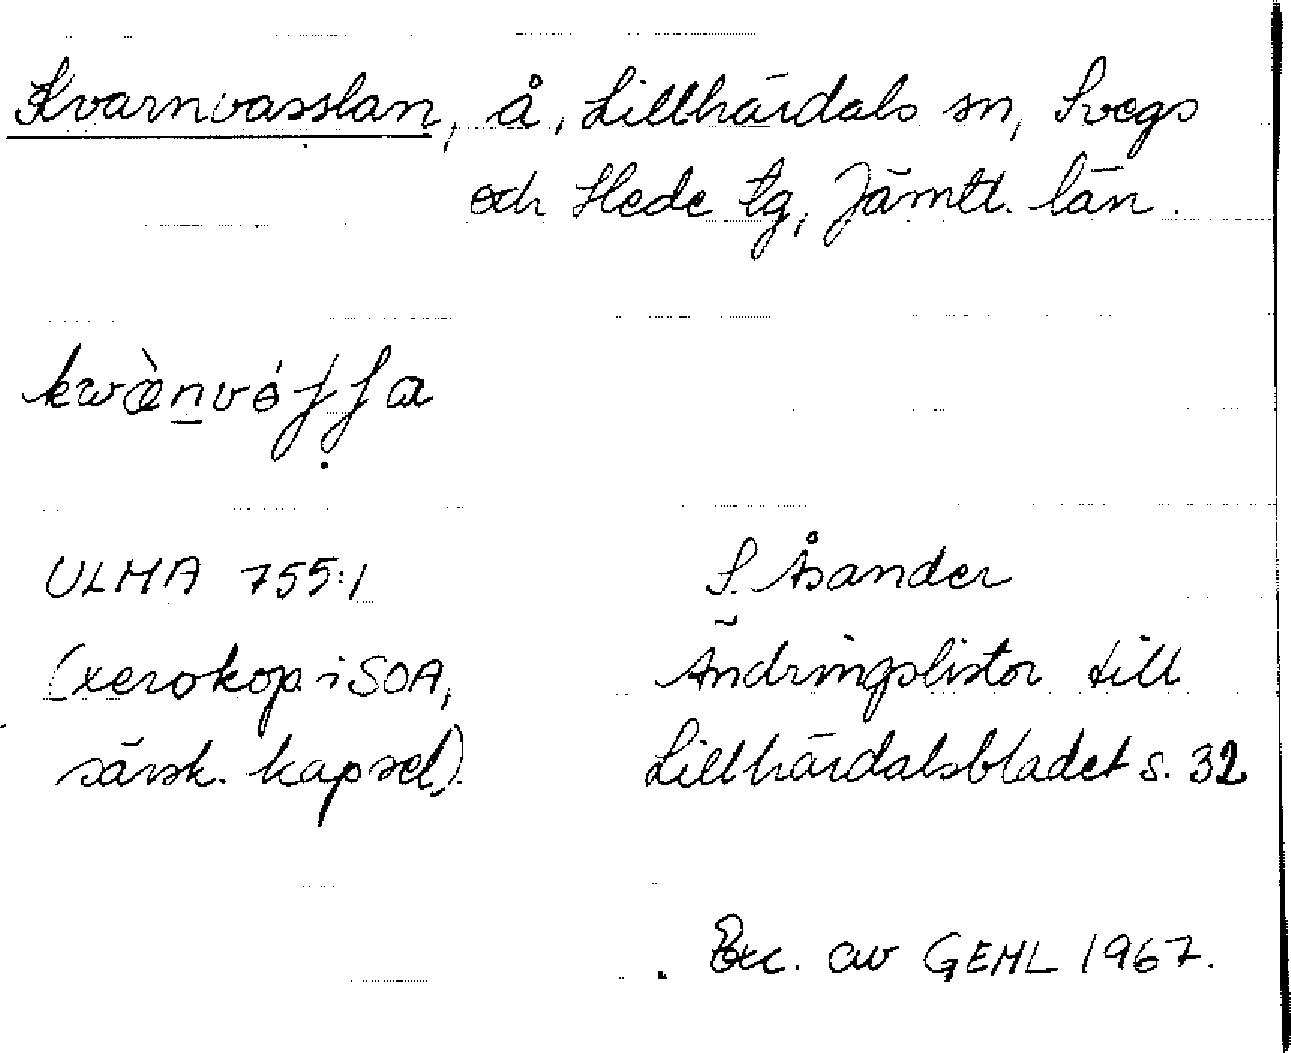 Kvarnvasslan, å, Lillhärdals sn, Svegs
och Hede tg, Jämtl. län.
kwæ̀n̲vɵ́ʃʃ̣a
ULMA 755:1
S. Åsander
(xerokop. i SOA,
Ändringslistor till
särsk. kapsel).
Lillhärdalsbladet s. 32
Exc. av GEHL 1967.